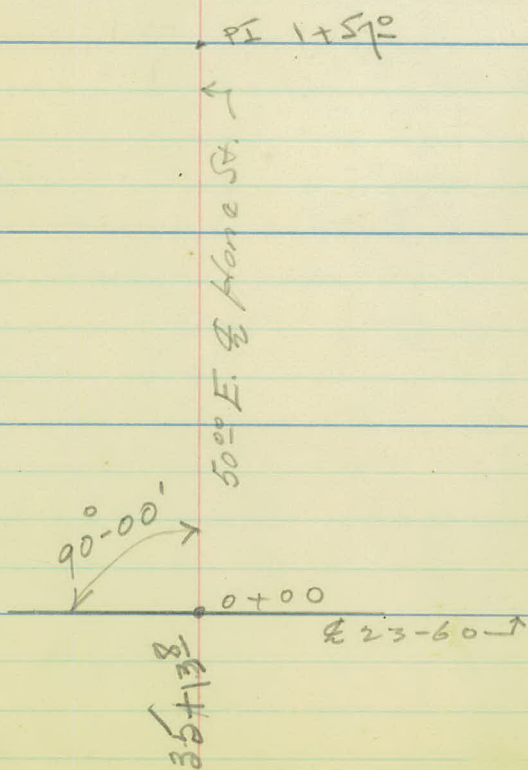 PI 1+57⁰
50⁰⁰ E. ℄ Hone St.
90°-00'
0+00
℄ 23-60
35+13⁸